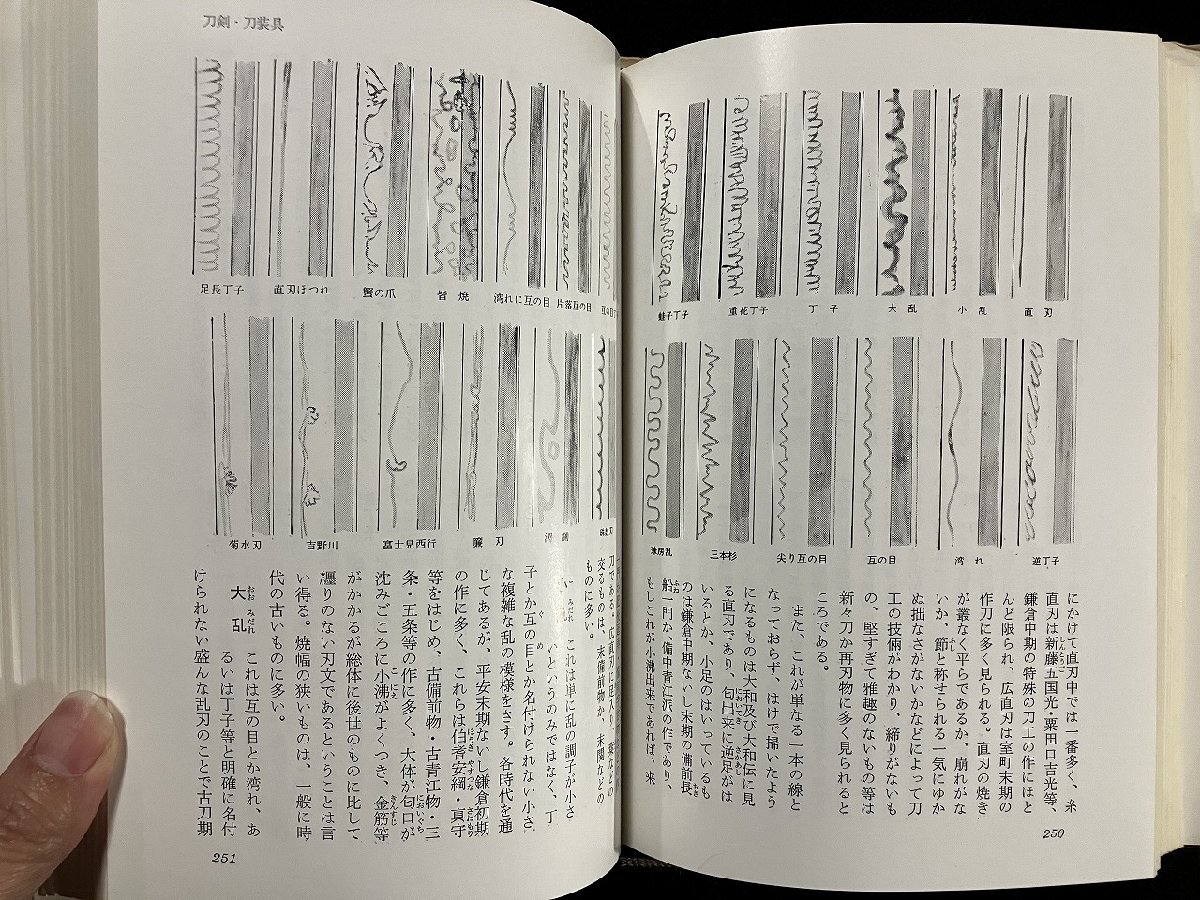 直刃
小乱
大乱
丁子
重花丁子
蛙子丁子
逆丁子
湾れ
互の目
尖り互の目
三本杉
にかけて直刃中では一番多く、糸
直刃は新藤五国光・粟田口吉光等、
鎌倉中期の特殊の刀工の作にほと
んど限られ、広直刃は室町末期の
作刀に多く見られる。直刃の焼き
が叢なく平らであるか、崩れがな
いか、節と称せられる一気にゆか
ぬ拙なさがないかなどによって刀
工の技倆がわかり、締りがないも
の、堅すぎて雅趣のないもの等は
新々刀か再刃物に多く見られると
ころである。
また、これが単なる一本の線と
なっておらず、はけで掃いたよう
になるものは大和及び大和伝に見
る直刃であり、匂出来に逆足がは
いるとか、小足のはいっているも
のは鎌倉中期ないし末期の備前長
船一門か、備中青江派の作であり、
もしこれが小沸出来であれば、来
250
刀剣・刀装具
片落互の目
湾れに互の目
皆焼
蟹の爪
直刃ほつれ
足長丁子
簾刃
富士見西行
吉野川
菊水刃
交るものは、末備前物か、末関などの
ものに多い。
これは単に乱の調子が小さ
いというのみではなく、丁
子とか互の目とか名付けられない小さ
な複雑な乱の模様をさす。各時代を通
じてあるが、平安末期ないし鎌倉初期
の作に多く、これらは伯耆安綱・真守
等をはじめ、古備前物・古青江物・三
条・五条等の作に多く、大体が匂口が
沈みごころに小沸がよくつき、金筋等
がかかるが総体に後世のものに比して
凝りのない刃文であるということは言
い得る。焼幅の狭いものは、一般に時
代の古いものに多い。
大乱 これは互の目とか湾れ、あ
るいは丁子等と明確に名付
けられない盛んな乱刃のことで古刀期
251